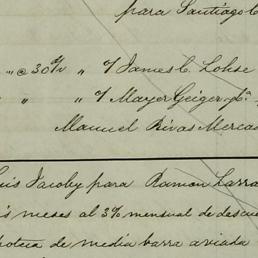 para Santiago C
" @ 30 d/v " % James C. Lohse
" " % Mayer Geiger y Ca.
Manuel Rivas Mercad
uis Jacoby para Ramon Larra
is meses al 3% mensual de descue
poteca de media barra aviada